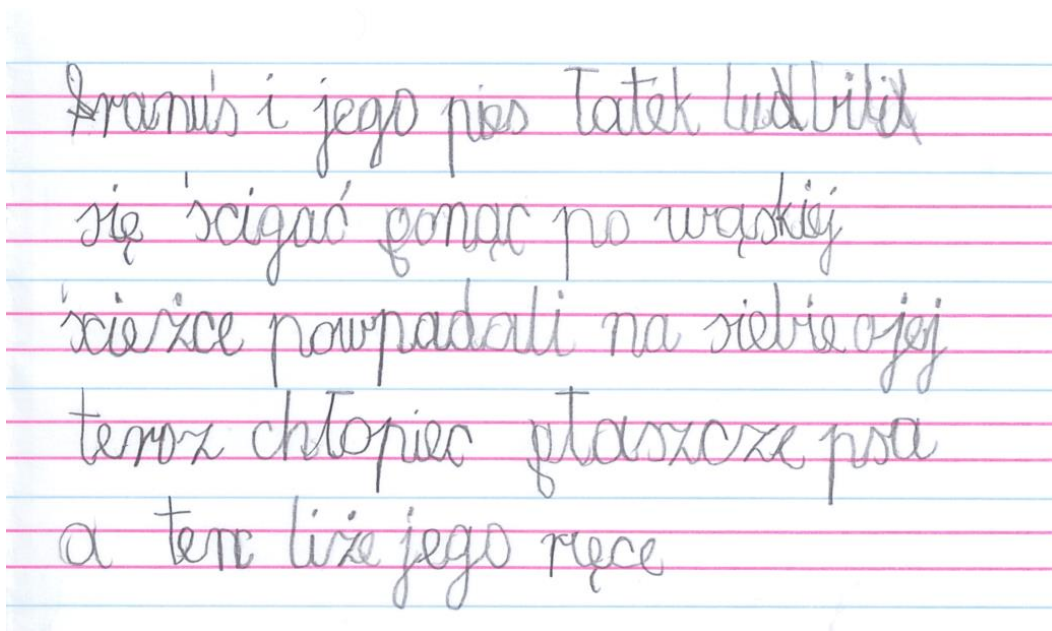 Franuś i jego pies Łatek
się ścigać gonąc po wąskiej
ścieżce powpadali na siebie ojej
teraz chłopiec głaszcze psa
a ten liże jego ręce